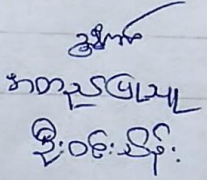 အတည်ပြုသူ
ဦးဝင်းသိန်း